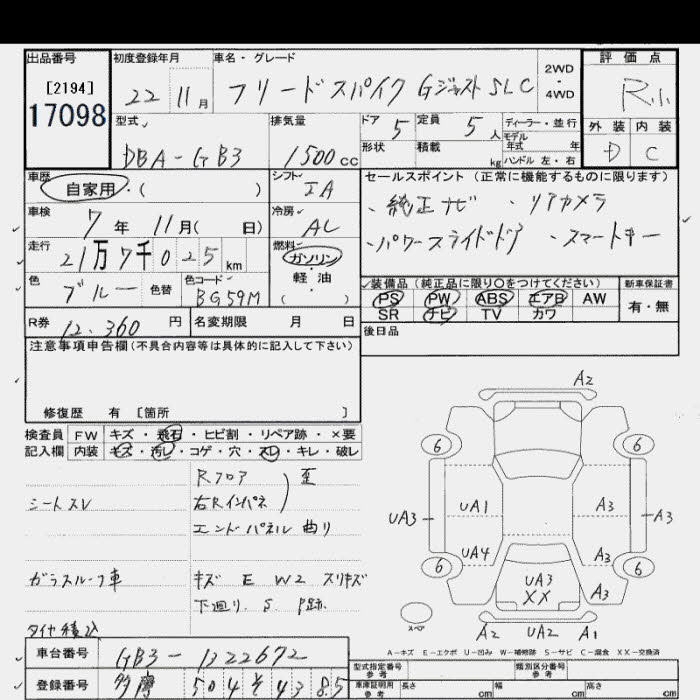 出品番号
[2194]
17098
初度登録年月
22 11月
車名・グレード
フリードスパイク Gジャスト SLC
2WD・4WD
評価点
R.1.
外装 内装
D C
型式
DBA-GB3
排気量
1500cc
ドア 5
形状
定員 5人
積載 kg
ディーラー・並行
モデル年式 年
ハンドル 左・右
車歴
自家用・( )
シフト IA
車検 7年 11月( 日)
冷房 AC
走行
21万7千025km
燃料
ガソリン・軽油
( )
色 ブルー 色替
色コード BG59M
R券 12.360円
名変期限 月 日
セールスポイント(正常に機能するものに限ります)
・純正ナビ ・リアカメラ
・パワースライドドア ・スマートキー
装備品(純正品に限り〇をつけてください)
PS PW ABS エアB AW
SR ナビ TV カワ
新車保証書
有・無
後日品
注意事項申告欄(不具合内容等は具体的に記入して下さい)
修復歴 有 [箇所 ]
検査員記入欄
FW キズ・飛石・ヒビ割・リペア跡・×要
内装 キズ・汚レ・コゲ・穴・スレ・キレ・破レ
Rフロア
右Rインパネ 歪
エンドパネル 曲り
シートスレ
ガラスルーフ車
キズ E W2 スリキズ
下廻り S P跡
タイヤ積込
A2
6 6
UA3 UA1 A3 A3
UA4 A3
6 6
UA3 XX A3
スペア
A2 UA2 A1
A-キズ E-エクボ U-凹み W-補修跡 S-サビ C-腐食 XX-交換済
車台番号 GB3-1322672
登録番号 多摩 504 そ 43 85
型式指定番号 参考
類別区分番号 参考
車庫証明用 参考 長さ cm 幅 cm 高さ cm